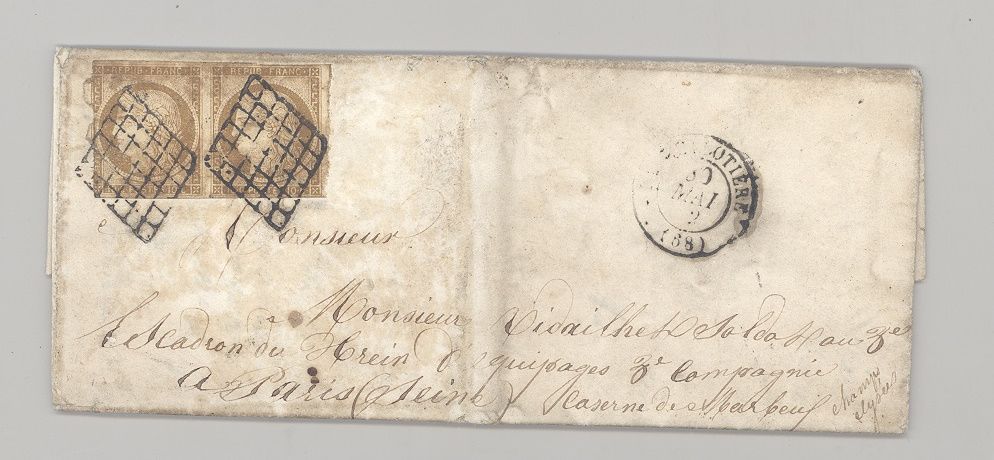 REPUB FRANC REPUB FRANC
OTIÈRE
30
MAI
(68)
Monsieur
Monsieur Vidailhet Soldat au 3e
Escadron du Trein d'equipages 3e Compagnie
a Paris (Seine) Caserne de Marbeuf
champs
elysées